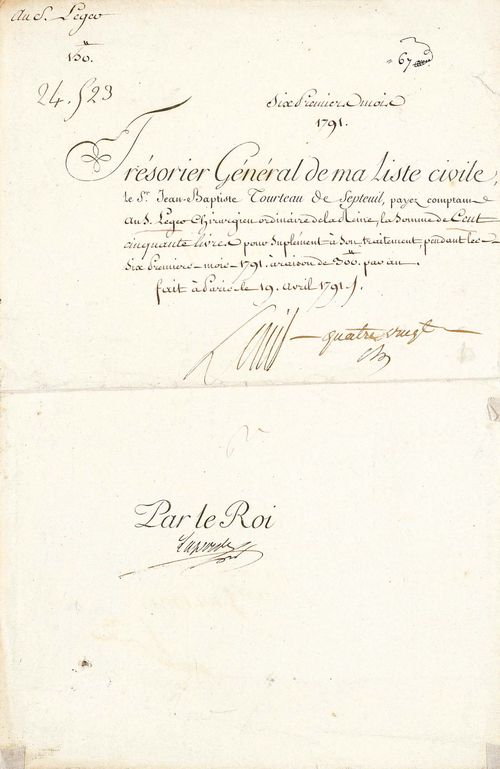 Au S. Léger
150.
67
24. 523
Six Premiers mois
1791.
Trésorier Général de ma Liste civile,
le Sr. Jean-Baptiste Tourteau de Septeuil, payez comptant
au S. Léger Chirurgien ordinaire de la Reine, la somme de Cent
cinquante livres pour Suplément à Son traitement pendant les
Six Premiers mois 1791. à raison de 300. par an.
fait à Paris le 19. Avril 1791.
Louis quatre vingt
Par le Roi
Laporte